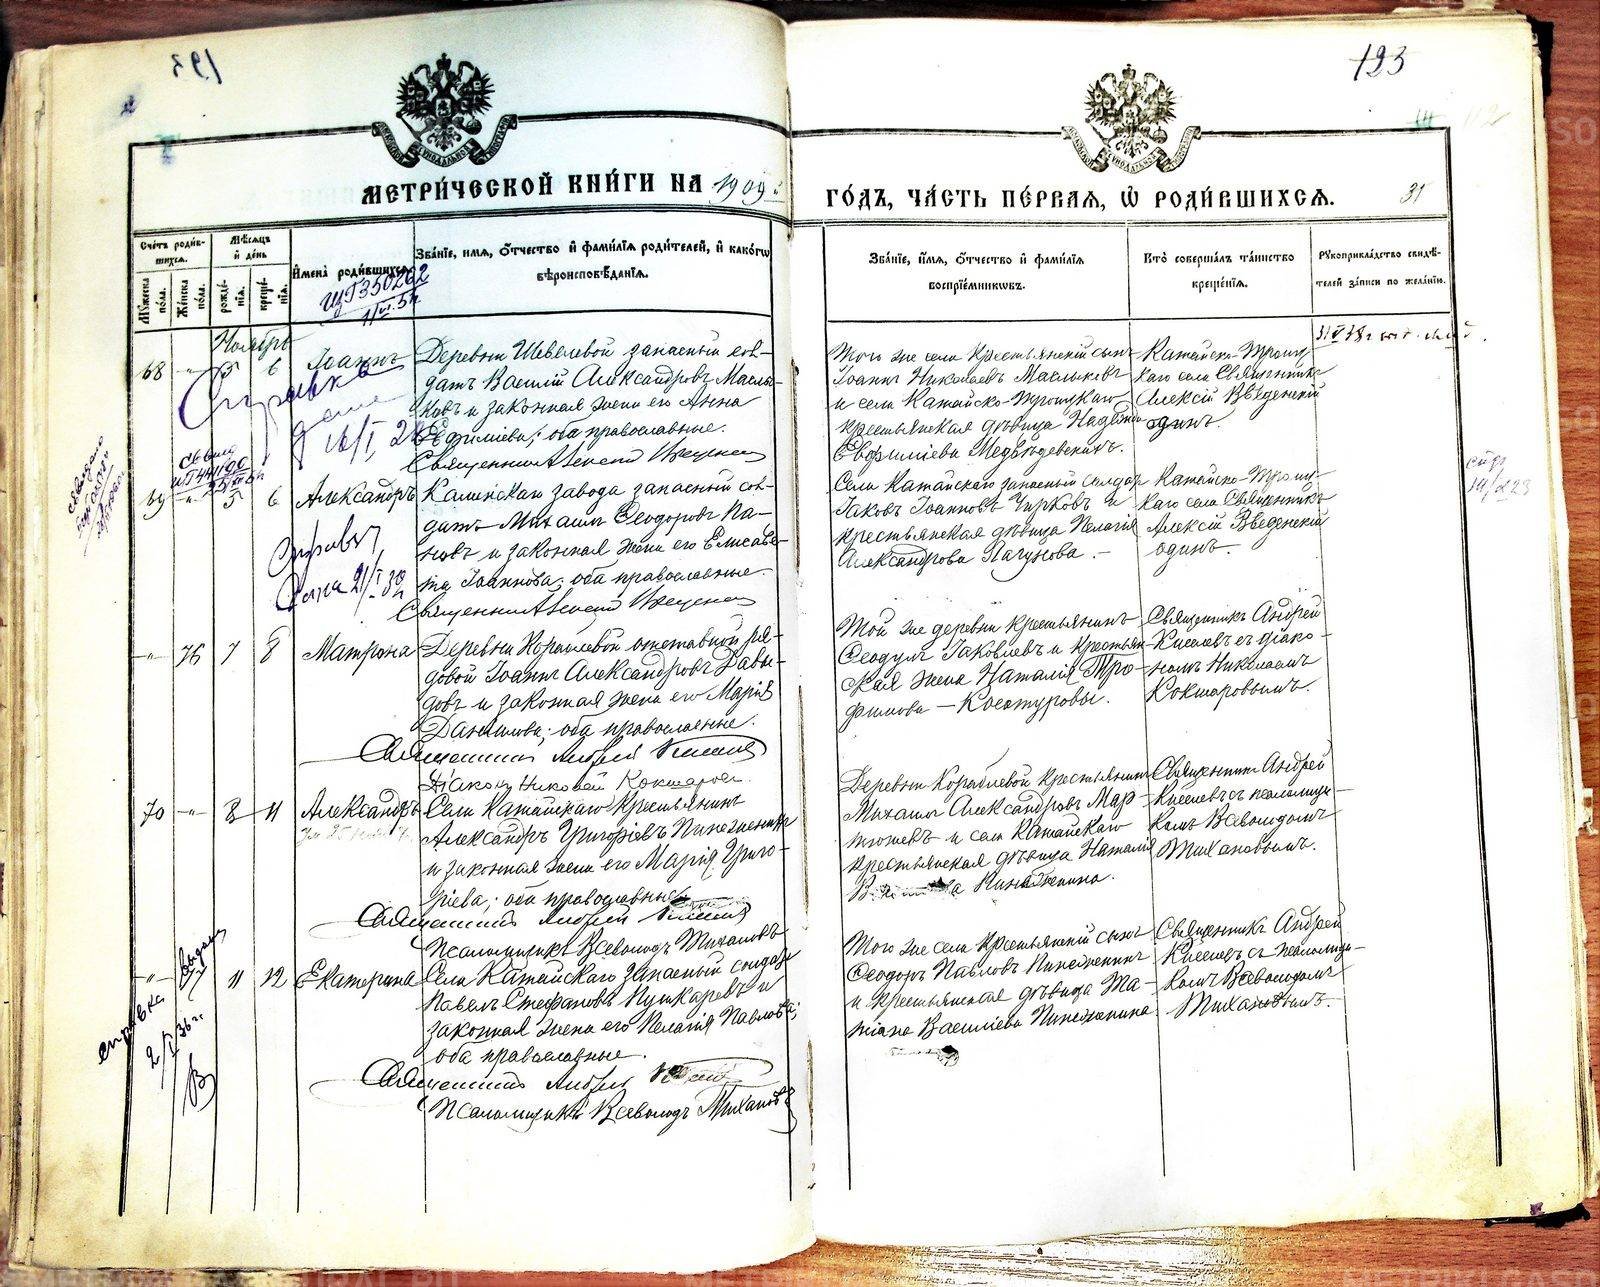 193
123
112
МЕТРИ́ЧЕСКОЙ КНИ́ГИ НА 1909
ГО́ДЪ, ЧА́СТЬ ПЕ́РВАЯ, Ѡ РОДИ́ВШИХСЯ.
31
Сче́тъ роди́вшихся.
Му́жеска по́ла.
Же́нска по́ла.
Мѣ́сяцъ и де́нь
рожде́нія.
креще́нія.
Имена̀ роди́вшихся.
Зва́ніе, и́мя, о́тчество и фами́лія роди́телей, и како́гѡ
вѣроисповѣ́данія.
Зва́ніе, и́мя, о́тчество и фами́лія
воспріе́мниковъ.
Кто̀ соверша́лъ та́инство
креще́нія.
Рукоприкла́дство свидѣ́телей за́писи по жела́нію.
Ноябрь
68 -"- 5 6 Іоаннъ
Деревни Шевелевой запасный сол-
датъ Василій Александровъ Маслы-
ковъ и законная жена его Анна
Евфиміева; оба православные.
Того же села крестьянскій сынъ
Іоаннъ Николаевъ Маслыковъ
и села Катайско-Троицкаго
крестьянская дѣвица Надежда
Евфиміева Медвѣдевскихъ.
Катайско-Троиц-
каго села Священникъ
Алексій Введенскій
одинъ.
Справка
дана
16/I 24
69 " 5 6 Александръ
Каменскаго завода запасный сол-
датъ Михаилъ Ѳеодоровъ Па-
новъ и законная жена его Елисаве-
та Іоаннова; оба православные.
Села Катайскаго запасный солдат
Іаковъ Іоанновъ Чирковъ и
крестьянская дѣвица Пелагія
Александрова Лагунова.
Катайско-Троиц-
каго села Священникъ
Алексій Введенскій
одинъ.
-"- 76 7 8 Матрона
Деревни Кораблевой отставной ря-
довой Іоаннъ Александровъ Давы-
довъ и законная жена его Марія
Даніилова; оба православные.
Священникъ Андрей Киселевъ
Діаконъ Николай Кокшаровъ.
Той же деревни крестьянинъ
Ѳеодулъ Іаковлевъ и крестьян-
ская жена Наталія Тро-
фимова — Костоуровы.
Священникъ Андрей
Киселевъ съ діако-
номъ Николаемъ
Кокшаровымъ.
70 -"- 8 11 Александръ
Села Катайскаго крестьянинъ
Александръ Григоріевъ Пинеженинъ
и законная жена его Марія Григо-
ріева; оба православные
Священникъ Андрей Киселевъ
Псаломщикъ Всеволодъ Тихановъ
Деревни Кораблевой крестьянинъ
Михаилъ Александровъ Мар-
тюшевъ и села Катайскаго
крестьянская дѣвица Наталія
Пинеженина.
Священникъ Андрей
Киселевъ съ псаломщи-
комъ Всеволодомъ
Тихановымъ.
-"- 77 11 12 Екатерина
Села Катайскаго запасный солдатъ
Павелъ Стефановъ Пушкаревъ и
законная жена его Пелагія Павлова;
оба православные.
Священникъ Андрей
Псаломщикъ Всеволодъ Тихановъ
Того же села крестьянскій сынъ
Ѳеодоръ Павловъ Пинеженинъ
и крестьянская дѣвица Та-
тіана Василіева Пинеженина
Священникъ Андрей
Киселевъ съ псаломщи-
комъ Всеволодомъ
Тихановымъ.
справка